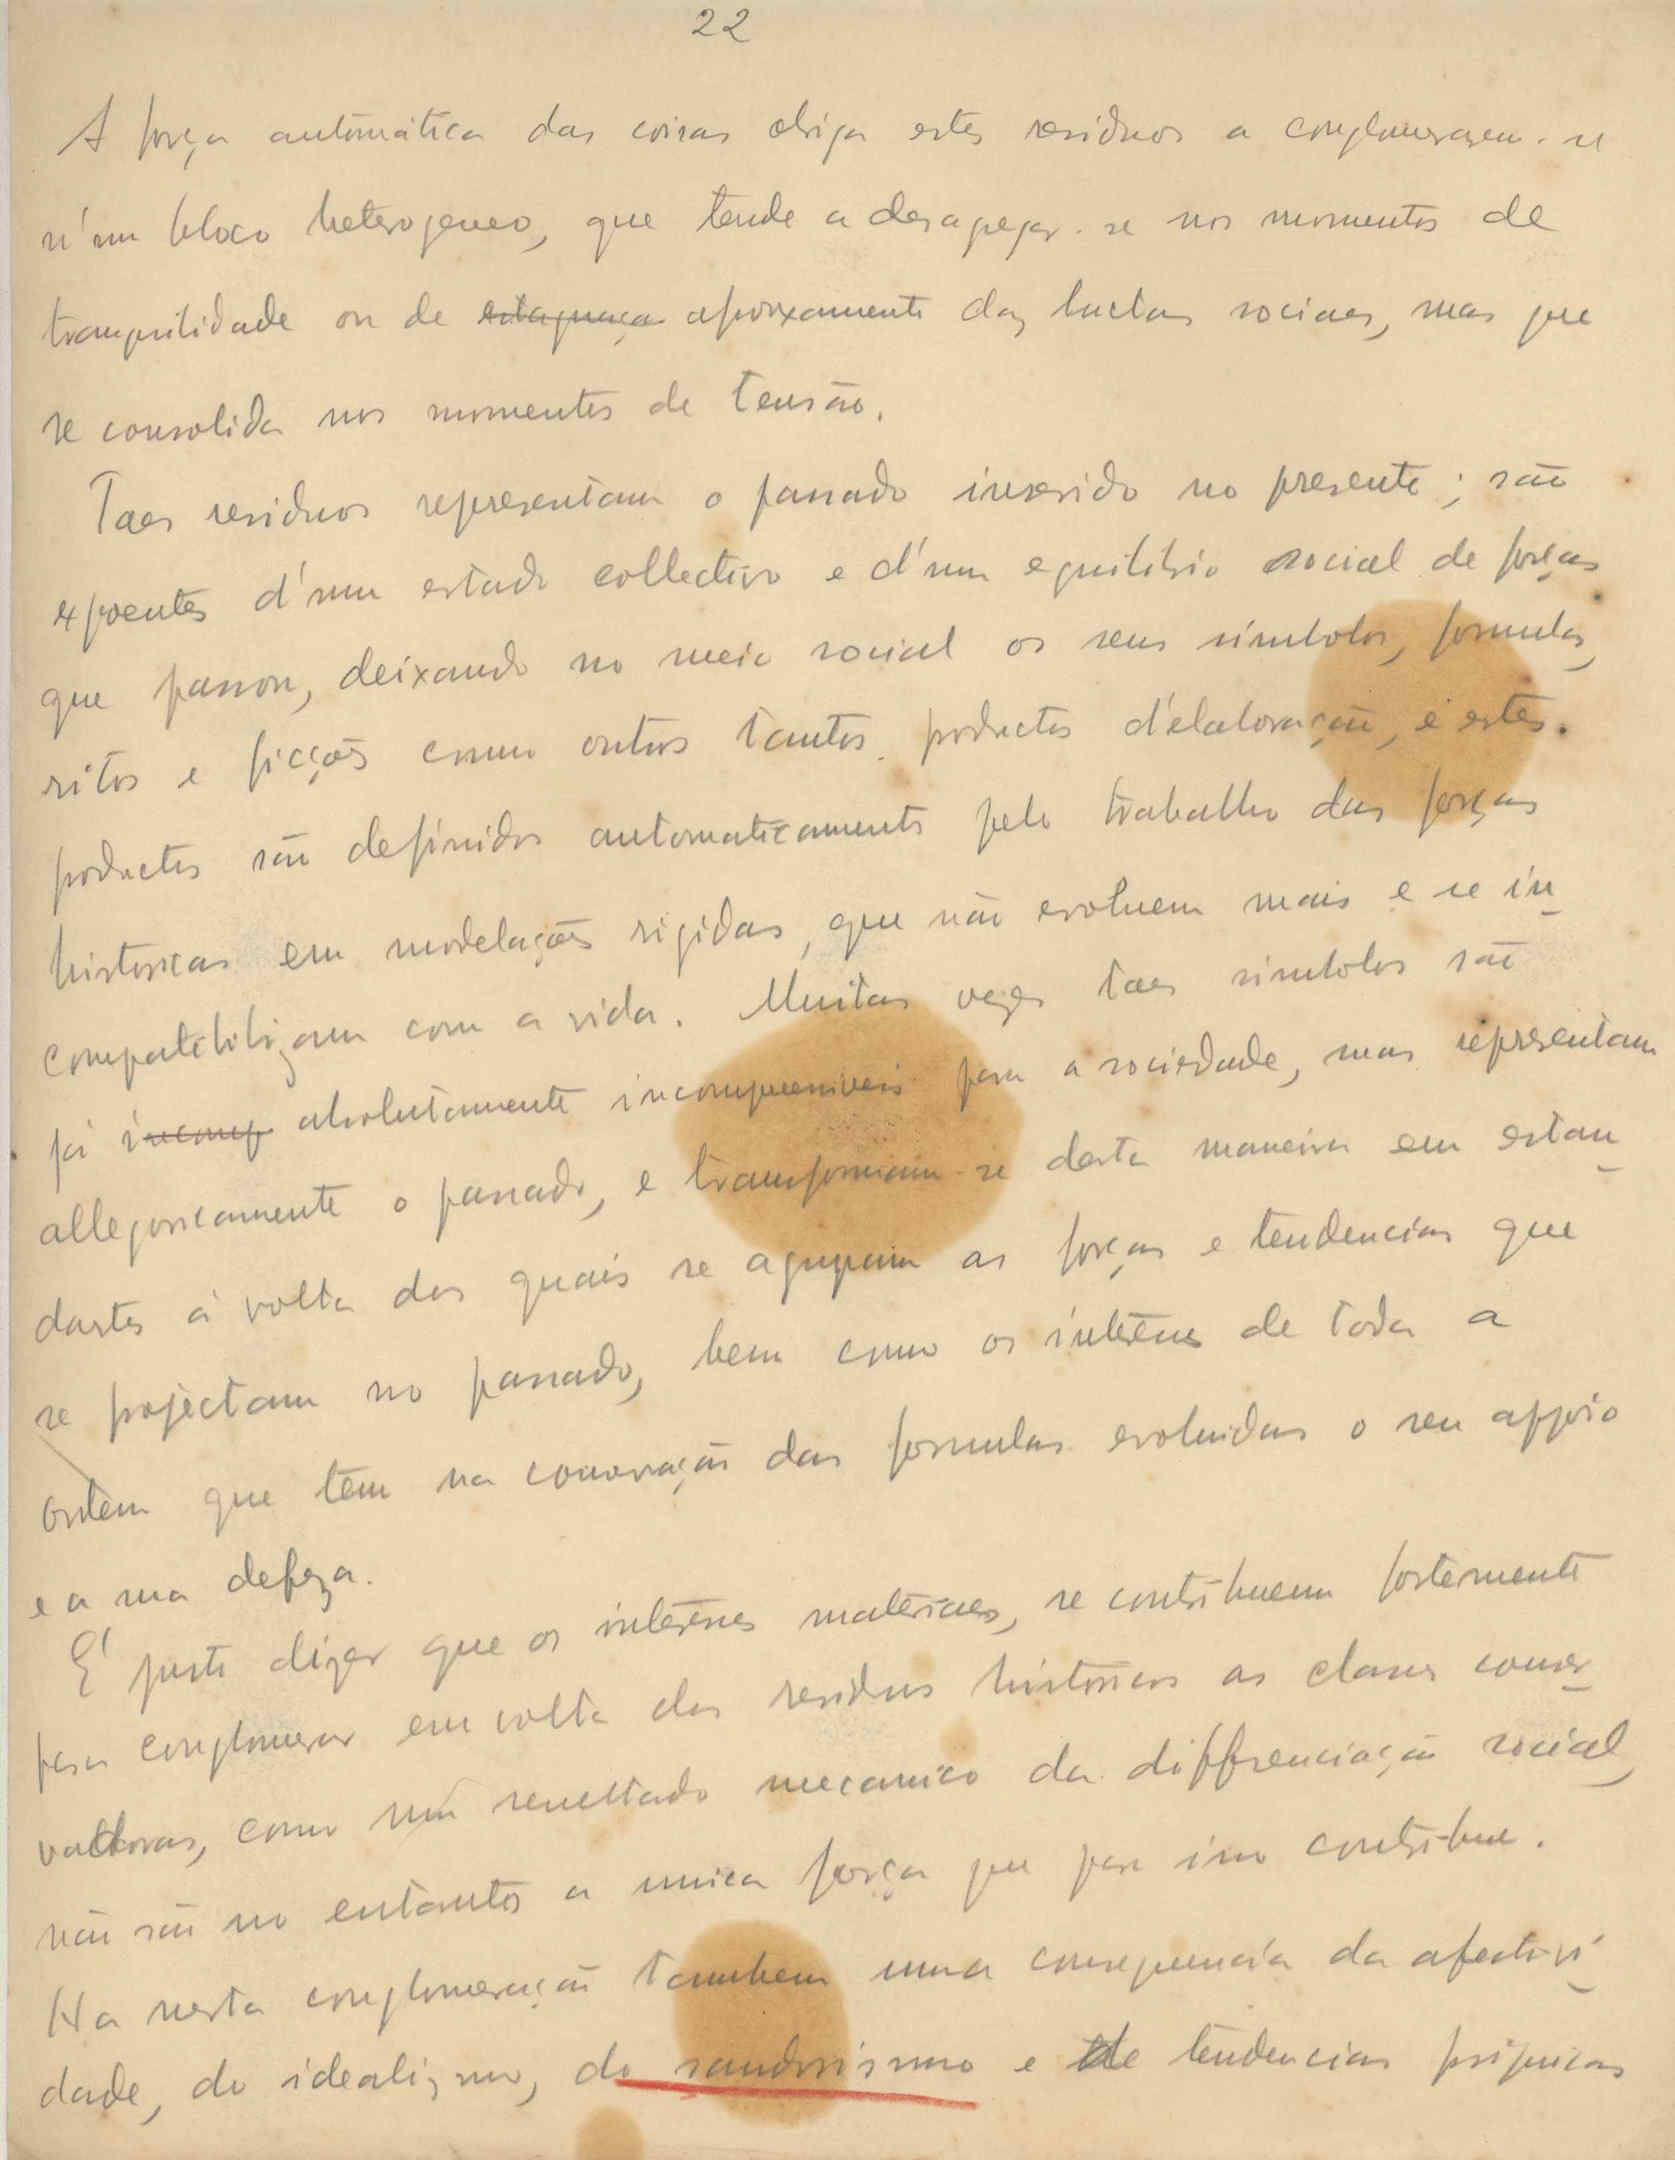 22
A força automática das coisas obriga estes residuos a conglomerarem-se
n'um bloco heterogeneo, que tende a desapegar-se nos momentos de
tranquilidade ou de estagnaça afrouxamento das luctas sociaes, mas que
se consolida nos momentos de tensão.
Taes residuos representam o passado inserido no presente; são
expoentes d'um estado collectivo e d'um equilibrio social de forças
que passou, deixando no meio social os seus simbolos, formulas,
ritos e ficções como outros tantos productos d'elaboração, e estes
productos são definidos automaticamente pelo trabalho das forças
historicas em modelações rigidas, que não evoluem mais e se in-
compatibilizam com a vida. Muitas vezes taes simbolos são
já incomp absolutamente incomprensiveis para a sociedade, mas representam
allegoricamente o passado, e transformam-se desta maneira em estan-
dartes á volta dos quais se agrupam as forças e tendencias que
se projectam no passado, bem como os interesses de toda a
ordem que têm na conservação das formulas evoluidas o seu appoio
e a sua defeza.
É justo dizer que os interesses materiaes, se contribuem fortemente
para conglomerar em volta dos residuos historicos as classes conser-
vadoras, como um resultado mecanico da differenciação social,
não são no entanto a unica força que para isso contribue.
Ha nesta conglomeração tambem uma consequencia da afectivi-
dade, do idealismo, do saudosismo e de tendencias psiquicas